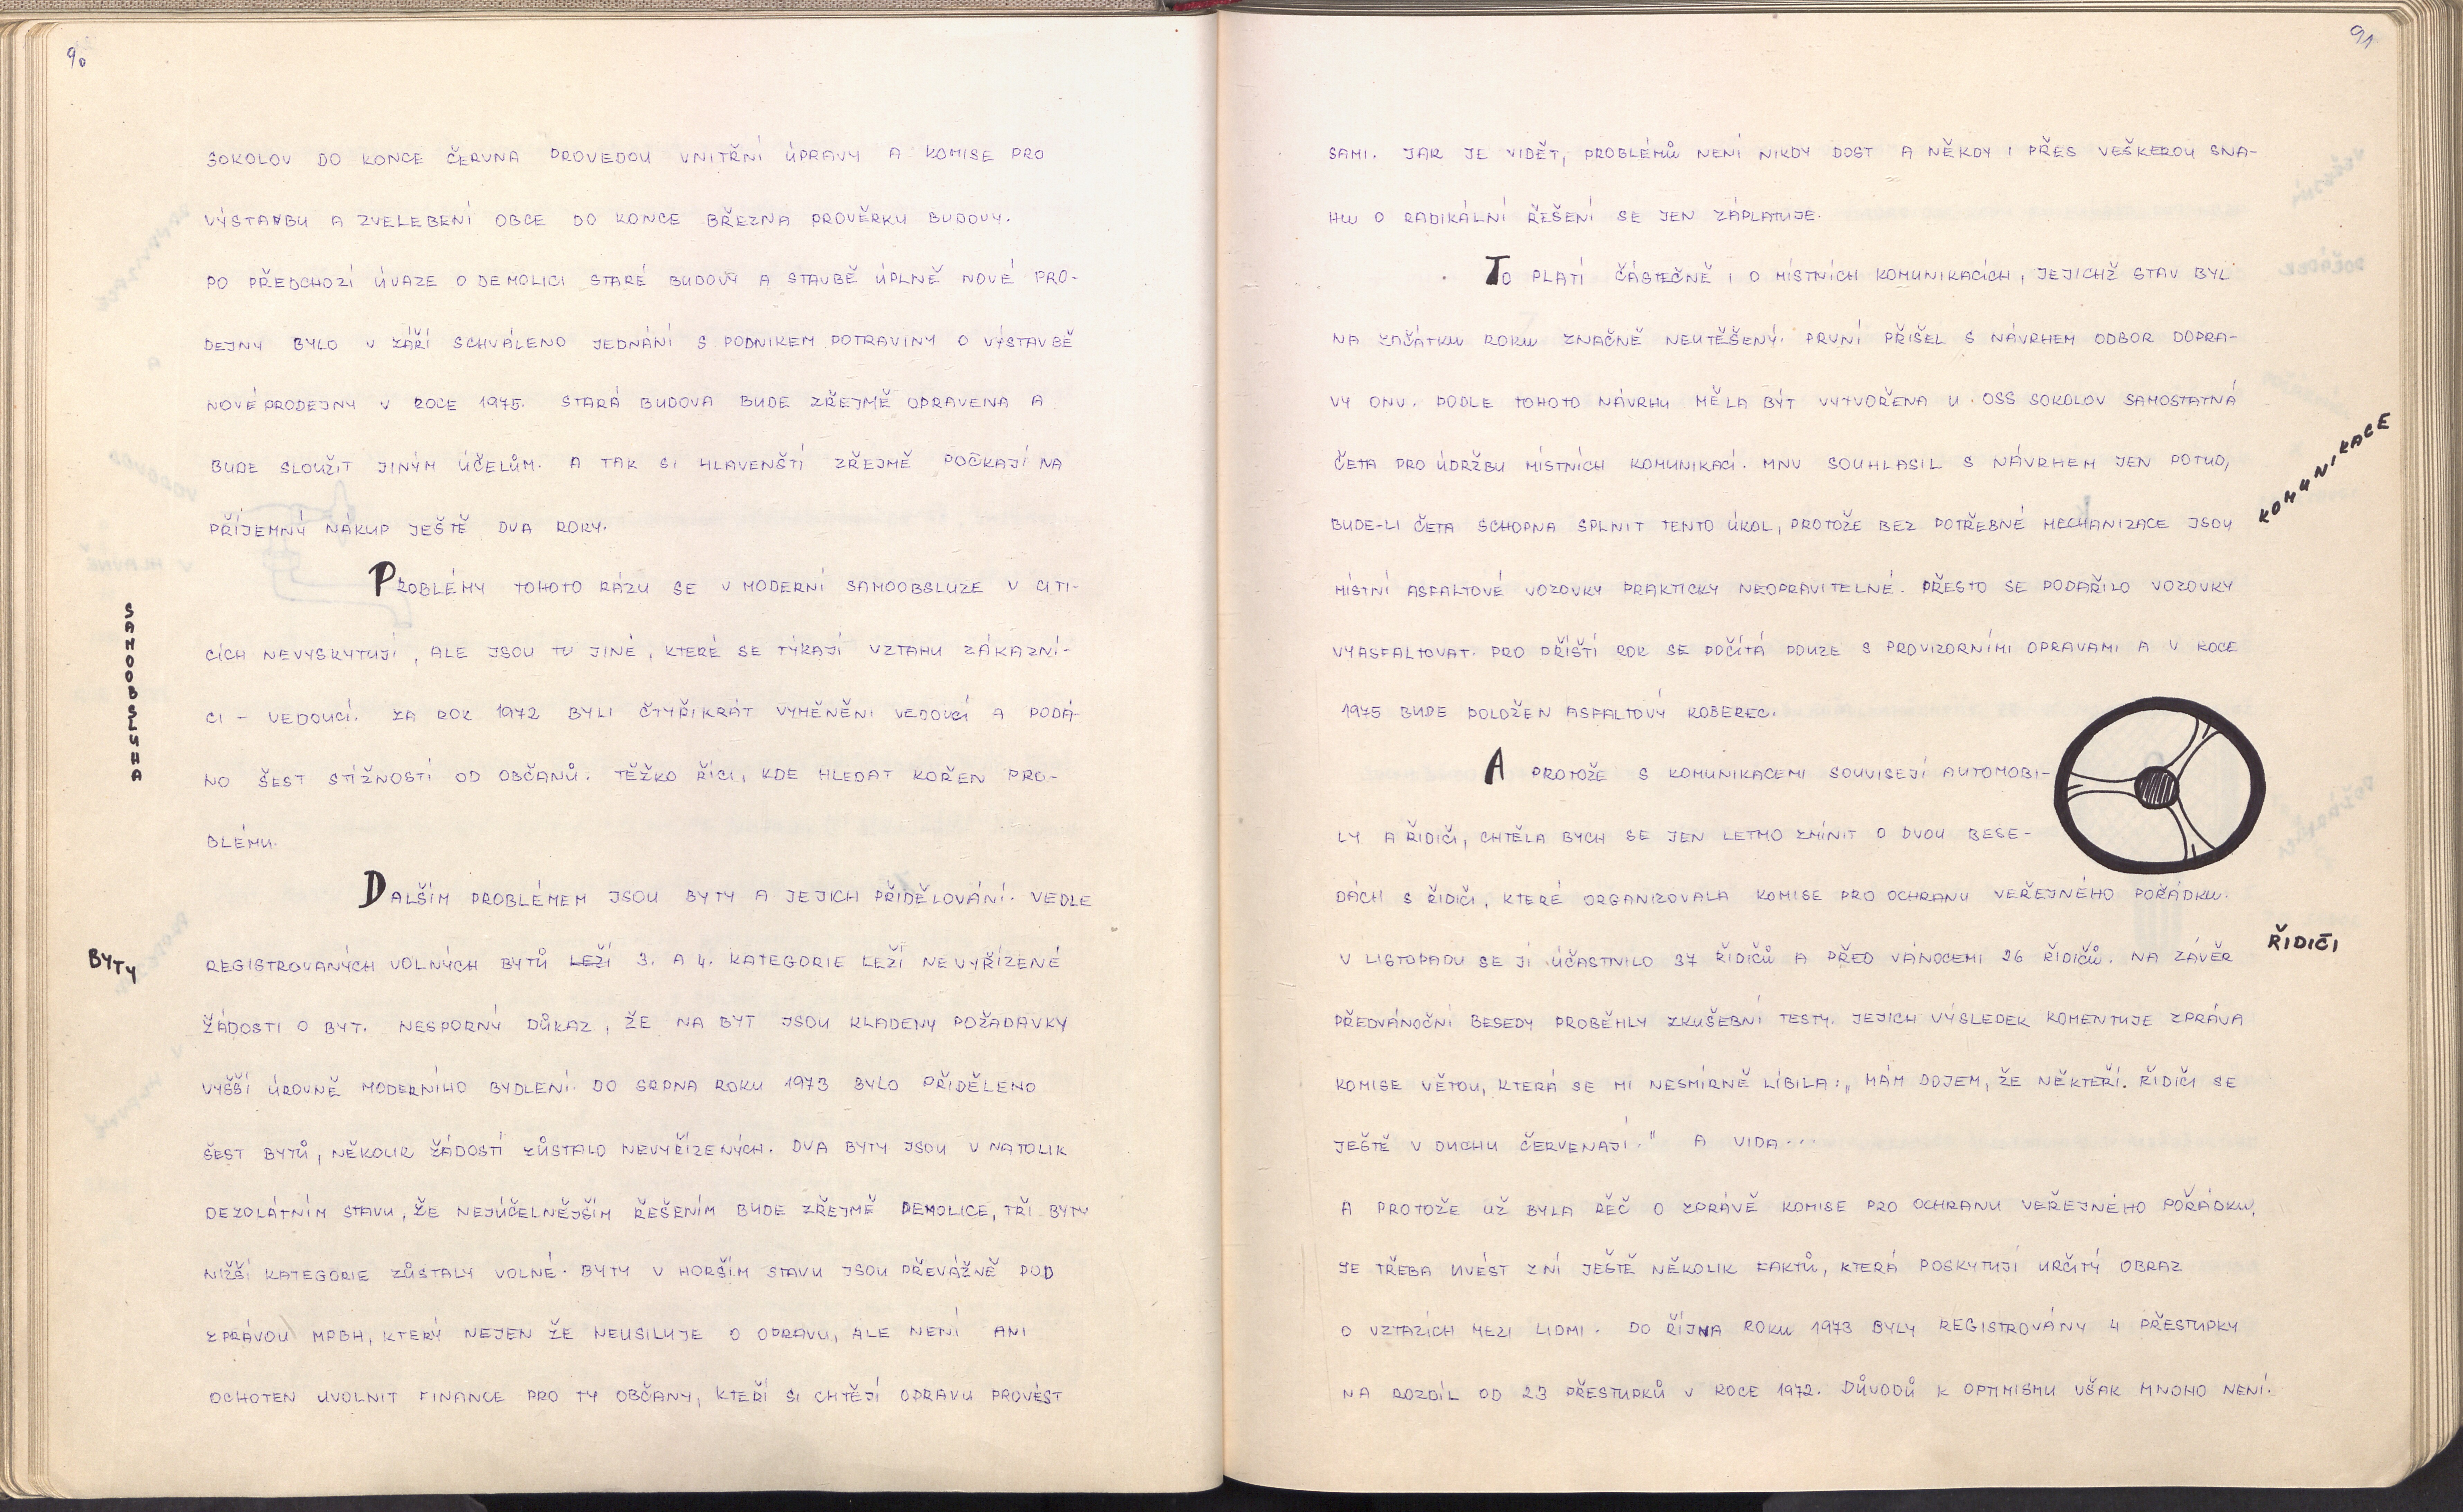 90
SOKOLOV DO KONCE ČERVNA PROVEDOU VNITŘNÍ ÚPRAVY A KOMISE PRO
VÝSTAVBU A ZVELEBENÍ OBCE DO KONCE BŘEZNA PROVĚRKU BUDOVY.
PO PŘEDCHOZÍ ÚVAZE O DEMOLICI STARÉ BUDOVY A STAVBĚ ÚPLNĚ NOVÉ PRO-
DEJNY BYLO V ZÁŘÍ SCHVÁLENO JEDNÁNÍ S PODNIKEM POTRAVINY O VÝSTAVBĚ
NOVÉ PRODEJNY V ROCE 1975. STARÁ BUDOVA BUDE ZŘEJMĚ OPRAVENA A
BUDE SLOUŽIT JINÝM ÚČELŮM. A TAK SI HLAVENŠTÍ ZŘEJMĚ POČKAJÍ NA
PŘÍJEMNÝ NÁKUP JEŠTĚ DVA ROKY.
PROBLÉMY TOHOTO RÁZU SE V MODERNÍ SAMOOBSLUZE V CITI-
CÍCH NEVYSKYTUJÍ, ALE JSOU TU JINÉ, KTERÉ SE TÝKAJÍ VZTAHU ZÁKAZNÍ-
CI - VEDOUCÍ. ZA ROK 1972 BYLI ČTYŘIKRÁT VYMĚNĚNI VEDOUCÍ A PODÁ-
NO ŠEST STÍŽNOSTÍ OD OBČANŮ. TĚŽKO ŘÍCI, KDE HLEDAT KOŘEN PRO-
BLÉMU.
SAMOOBSLUHA
DALŠÍM PROBLÉMEM JSOU BYTY A JEJICH PŘIDĚLOVÁNÍ. VEDLE
REGISTROVANÝCH VOLNÝCH BYTŮ LEŽÍ 3. A 4. KATEGORIE LEŽÍ NEVYŘÍZENÉ
BYTY
ŽÁDOSTI O BYT. NESPORNÝ DŮKAZ, ŽE NA BYT JSOU KLADENY POŽADAVKY
VYŠŠÍ ÚROVNĚ MODERNÍHO BYDLENÍ. DO SRPNA ROKU 1973 BYLO PŘIDĚLENO
ŠEST BYTŮ, NĚKOLIK ŽÁDOSTÍ ZŮSTALO NEVYŘÍZENÝCH. DVA BYTY JSOU V NATOLIK
DEZOLÁTNÍM STAVU, ŽE NEJÚČELNĚJŠÍM ŘEŠENÍM BUDE ZŘEJMĚ DEMOLICE, TŘI BYTY
NIŽŠÍ KATEGORIE ZŮSTALY VOLNÉ. BYTY V HORŠÍM STAVU JSOU PŘEVÁŽNĚ POD
ZPRÁVOU MPBH, KTERÝ NEJEN ŽE NEUSILUJE O OPRAVU, ALE NENÍ ANI
OCHOTEN UVOLNIT FINANCE PRO TY OBČANY, KTEŘÍ SI CHTĚJÍ OPRAVU PROVÉST
91
SAMI. JAK JE VIDĚT, PROBLÉMŮ NENÍ NIKDY DOST A NĚKDY I PŘES VEŠKEROU SNA-
HU O RADIKÁLNÍ ŘEŠENÍ SE JEN ZÁPLATUJE.
TO PLATÍ ČÁSTEČNĚ I O MÍSTNÍCH KOMUNIKACÍCH, JEJICHŽ STAV BYL
NA ZAČÁTKU ROKU ZNAČNĚ NEUTĚŠENÝ. PRVNÍ PŘIŠEL S NÁVRHEM ODBOR DOPRA-
VY ONV. PODLE TOHOTO NÁVRHU MĚLA BÝT VYTVOŘENA U OSS SOKOLOV SAMOSTATNÁ
ČETA PRO ÚDRŽBU MÍSTNÍCH KOMUNIKACÍ. MNV SOUHLASIL S NÁVRHEM JEN POTUD,
BUDE-LI ČETA SCHOPNA SPLNIT TENTO ÚKOL, PROTOŽE BEZ POTŘEBNÉ MECHANIZACE JSOU
KOMUNIKACE
MÍSTNÍ ASFALTOVÉ VOZOVKY PRAKTICKY NEOPRAVITELNÉ. PŘESTO SE PODAŘILO VOZOVKY
VYASFALTOVAT. PRO PŘÍŠTÍ ROK SE POČÍTÁ POUZE S PROVIZORNÍMI OPRAVAMI A V ROCE
1975 BUDE POLOŽEN ASFALTOVÝ KOBEREC.
A PROTOŽE S KOMUNIKACEMI SOUVISEJÍ AUTOMOBI-
LY A ŘIDIČI, CHTĚLA BYCH SE JEN LETMO ZMÍNIT O DVOU BESE-
DÁCH S ŘIDIČI, KTERÉ ORGANIZOVALA KOMISE PRO OCHRANU VEŘEJNÉHO POŘÁDKU.
V LISTOPADU SE JÍ ÚČASTNILO 37 ŘIDIČŮ A PŘED VÁNOCEMI 26 ŘIDIČŮ. NA ZÁVĚR
ŘIDIČI
PŘEDVÁNOČNÍ BESEDY PROBĚHLY ZKUŠEBNÍ TESTY. JEJICH VÝSLEDEK KOMENTUJE ZPRÁVA
KOMISE VĚTOU, KTERÁ SE MI NESMÍRNĚ LÍBILA: „MÁM DOJEM, ŽE NĚKTEŘÍ. ŘIDIČI SE
JEŠTĚ V DUCHU ČERVENAJÍ." A VIDA...
A PROTOŽE UŽ BYLA ŘEČ O ZPRÁVĚ KOMISE PRO OCHRANU VEŘEJNÉHO POŘÁDKU,
JE TŘEBA UVÉST Z NÍ JEŠTĚ NĚKOLIK FAKTŮ, KTERÁ POSKYTUJÍ URČITÝ OBRAZ
O VZTAZÍCH MEZI LIDMI. DO ŘÍJNA ROKU 1973 BYLY REGISTROVÁNY 4 PŘESTUPKY
NA ROZDÍL OD 23 PŘESTUPKŮ V ROCE 1972. DŮVODŮ K OPTIMISMU VŠAK MNOHO NENÍ.